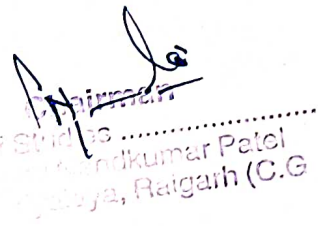 Chairman
Studies ..............................
ndkumar Patel
laya, Raigarh (C.G